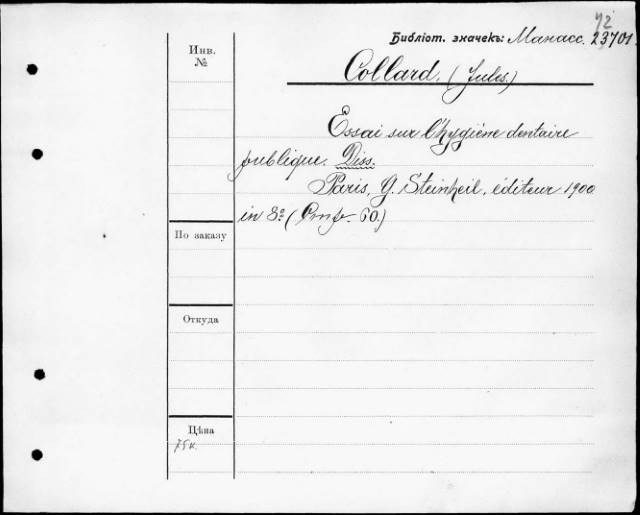 42
Библіот. значекъ: Манасс. 23701.
Инв.
№
Collard. (Jules.)
Essai sur l'hygiène dentaire
publique. Diss.
Paris, G. Steinheil, éditeur 1900
in 8º. (Стр. 60.)
По заказу
Откуда
Цѣна
75к.